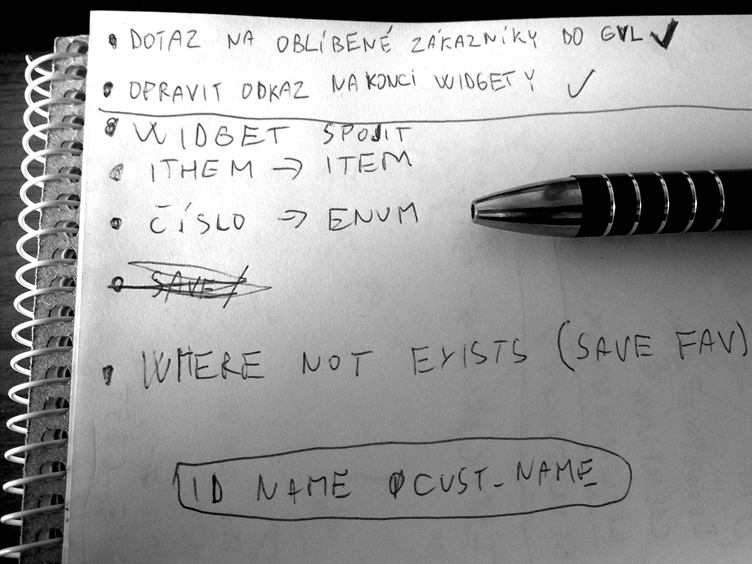 • DOTAZ NA OBLÍBENÉ ZÁKAZNÍKY DO GVL ✓
• OPRAVIT ODKAZ NA KONCI WIDGETY ✓
• WIDGET SPOJIT
• ITHEM → ITEM
• ČÍSLO → ENUM
• SAVE
• WHERE NOT EXISTS (SAVE FAV)
ID NAME CUST_NAME